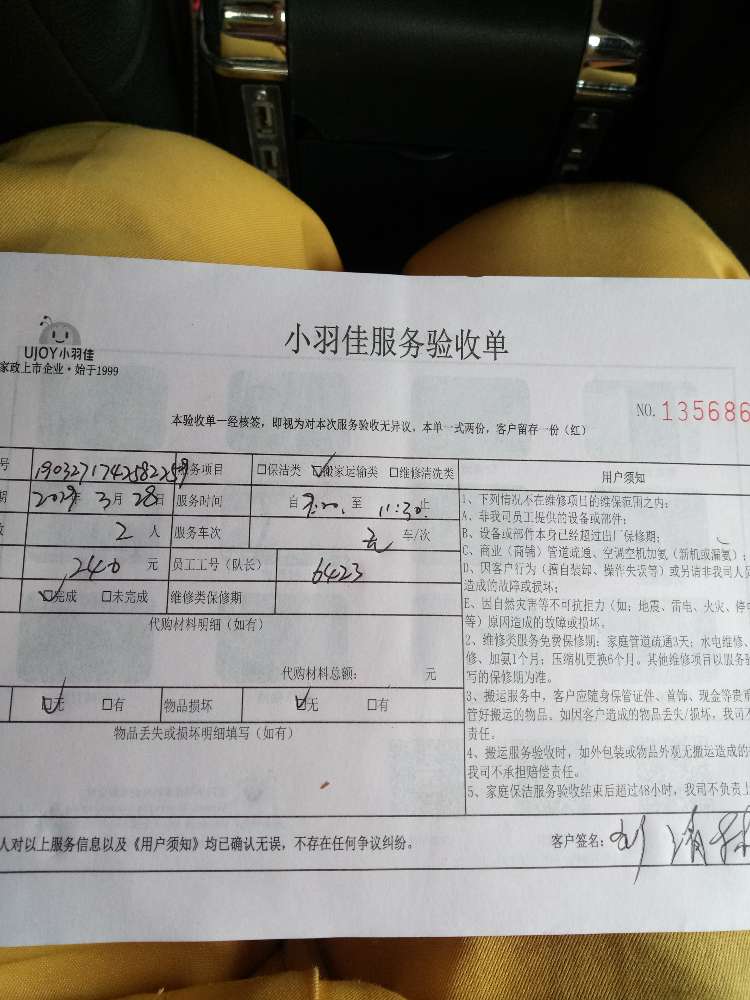 UJOY小羽佳
家政上市企业·始于1999
小羽佳服务验收单
NO.135686
本验收单一经核签，即视为对本次服务验收无异议。本单一式两份，客户留存一份（红）
号 服务项目 □保洁类 ☑搬家运输类 □维修清洗类 用户须知
期 年3月28日 服务时间 自 至 11:30止
数 2人 服务车次 车/次
240元 员工工号（队长） 6423
☑完成 □未完成 维修类保修期
代购材料明细（如有）
代购材料总额： 元
☑无 □有 物品损坏 ☑无 □有
物品丢失或损坏明细填写（如有）
1、下列情况不在维修项目的维保范围之内：
A、非我司员工提供的设备或部件；
B、设备或部件本身已经超过出厂保修期；
C、商业（商铺）管道疏通、空调空机加氨（新机或漏氨）；
D、因客户行为（擅自装卸、操作失误等）或另请非我司人员
造成的故障或损坏；
E、因自然灾害等不可抗拒力（如：地震、雷电、火灾、停
等）原因造成的故障或损坏。
2、维修类服务免费保修期：家庭管道疏通3天；水电维修、
修、加氨1个月；压缩机更换6个月。其他维修项目以服务
写的保修期为准。
3、搬运服务中，客户应随身保管证件、首饰、现金等贵
管好搬运的物品。如因客户造成的物品丢失/损坏，我司
责任。
4、搬运服务验收时，如外包装或物品外观无搬运造成的
我司不承担赔偿责任。
5、家庭保洁服务验收结束后超过48小时，我司不负责
人对以上服务信息以及《用户须知》均已确认无误，不存在任何争议纠纷。
客户签名：刘